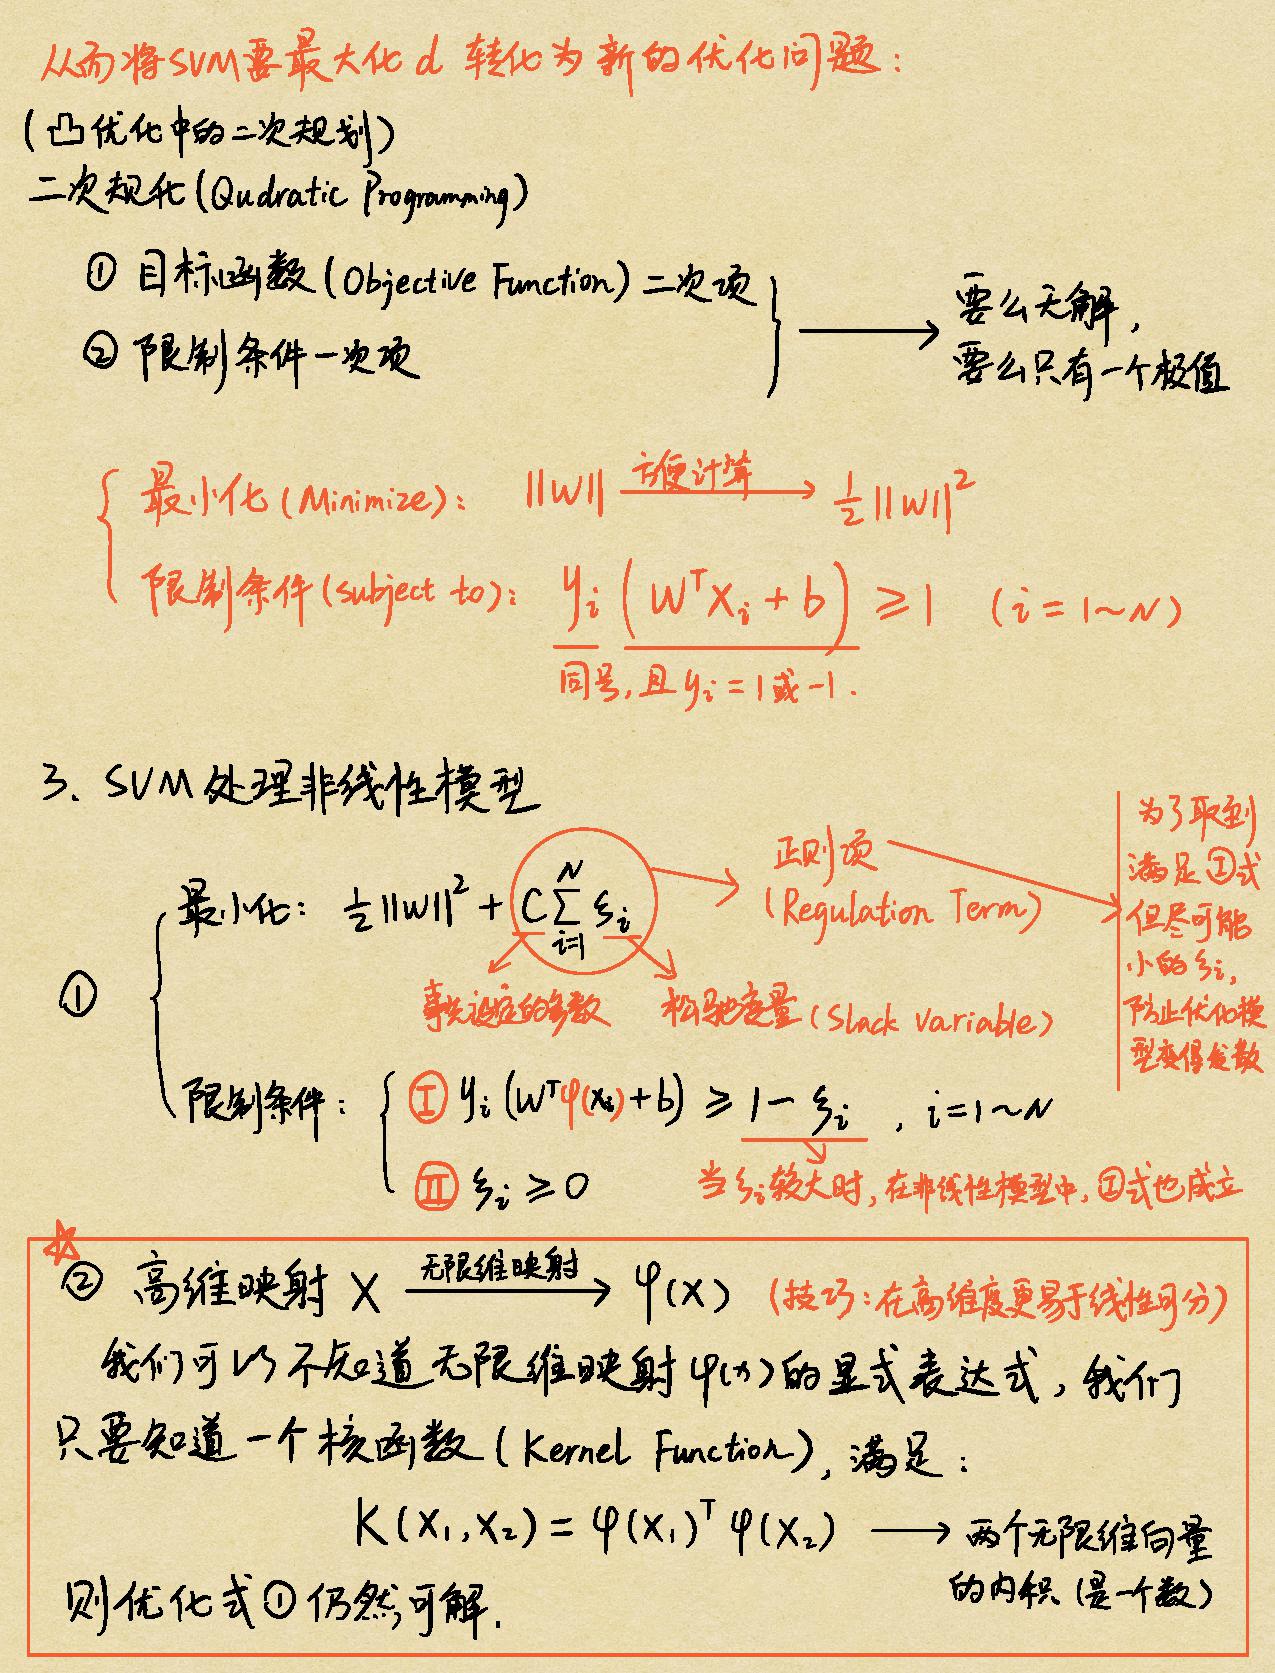 从而将SVM要最大化d 转化为新的优化问题：
(凸优化中的二次规划)
二次规化(Qudratic Programming)
① 目标函数(Objective Function)二次项
② 限制条件一次项
要么无解，
要么只有一个极值
最小化(Minimize)： ||W|| 方便计算 ½||W||²
限制条件(subject to)： yᵢ(WᵀXᵢ+b) ≥ 1 (i=1~N)
同号，且yᵢ=1或-1.
3、SVM处理非线性模型
① 最小化： ½||W||² + C∑ᵢ₌₁ᴺ ξᵢ
正则项
(Regulation Term)
为了取到
满足Ⓘ式
但尽可能
小的ξᵢ，
防止优化模
型变得发散
事先设定的参数
松弛变量(Slack variable)
限制条件： Ⓘ yᵢ(Wᵀφ(xᵢ)+b) ≥ 1-ξᵢ ，i=1~N
Ⅱ ξᵢ ≥ 0
当ξᵢ较大时，在非线性模型中，Ⓘ式也成立
② 高维映射 X 无限维映射 φ(X) (技巧：在高维度更易于线性可分)
我们可以不知道无限维映射φ(x)的显式表达式，我们
只要知道一个核函数(Kernel Function)，满足：
K(X₁,X₂)=φ(X₁)ᵀφ(X₂) → 两个无限维向量
的内积(是一个数)
则优化式①仍然可解.